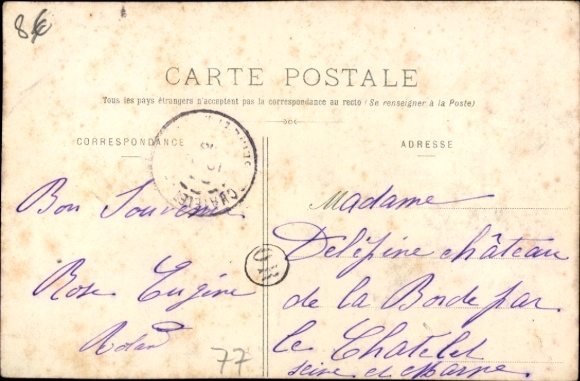 8€
CARTE POSTALE
Tous les pays étrangers n'acceptent pas la correspondance au recto (Se renseigner à la Poste)
CORRESPONDANCE
ADRESSE
CHATELET
Bon Souvenir
Rose Eugène
Madame
Delépine château
de la Borde par
le Chatelet
seine et marne
OR
77